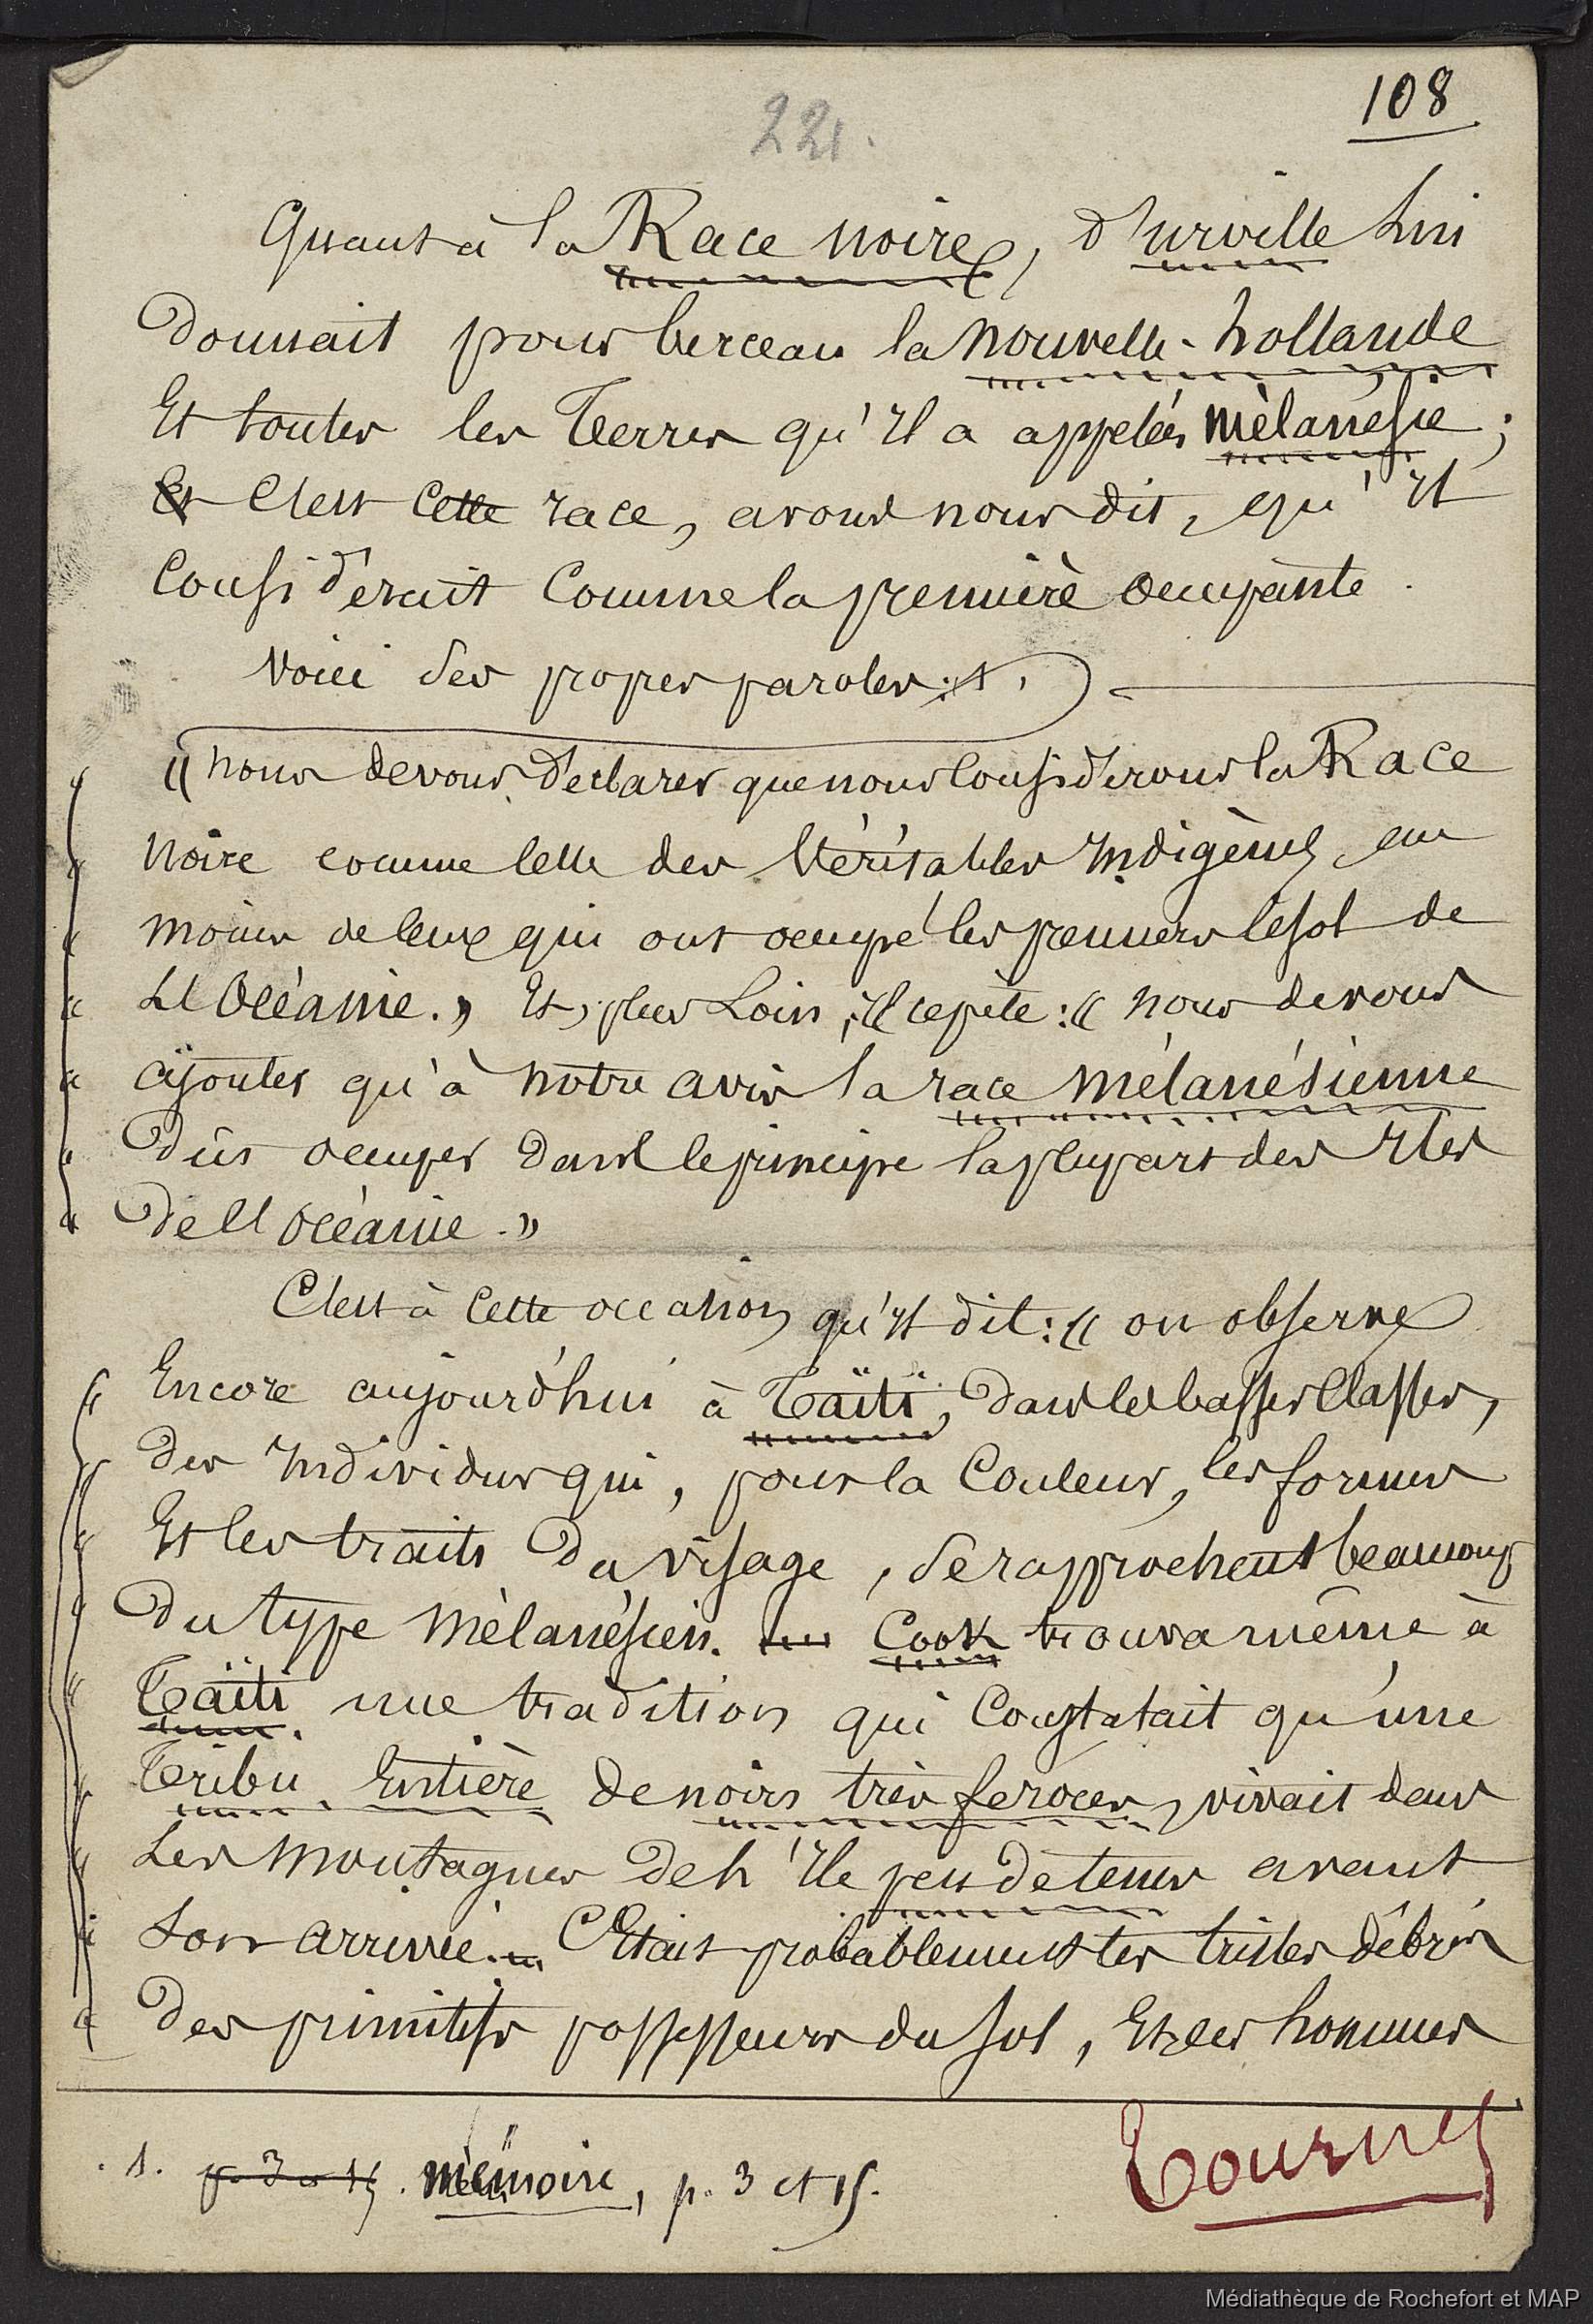 108
221.
Quant à la Race noire, d'urville lui
donnait pour berceau la nouvelle-hollande
Et toutes les Terres qu'il a appelées mélanésie ;
Et C'est cette race, avons nous dit, qu'il
Considérait Comme la première occupante.
Voici ses propres paroles : 1.
« nous devons déclarer que nous Considérons la Race
noire comme celle des Véritables Indigènes, en
moins de ceux qui ont occupé les premiers le sol de
L'Océanie. » Et, plus Loin, il répète : « nous devons
ajouter qu'à notre avis la race mélanésienne
dût occuper dans le principe la plupart des Iles
de l'Océanie. »
C'est à cette occasion qu'il dit : « on observe
Encore aujourd'hui à Taïti, dans les basses Classes,
des Individus qui, pour la Couleur, les formes
Et les traits du visage, se rapprochent beaucoup
du type mélanésien. Cook trouva même à
Taïti une tradition qui Constatait qu'une
Tribu Entière de noirs très féroces, vivait dans
Les montagnes de L'Ile peu de tems avant
Son arrivée. C'Etait probablement les tristes débris
des primitifs possesseurs du sol, Et les hommes
1. p. 3 et 15. mémoire, p. 3 et 15.
Tournez
Médiathèque de Rochefort et MAP